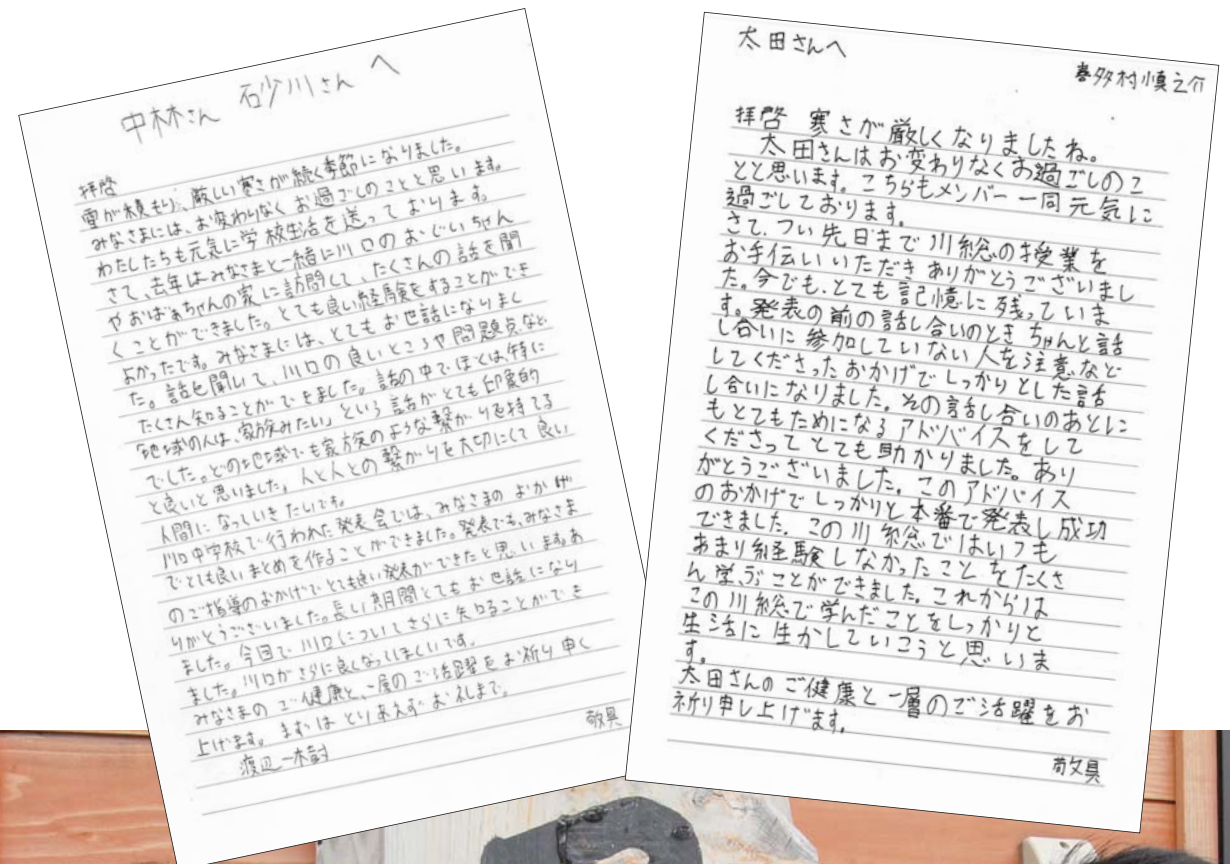 中林さん 砂川さん へ
拝啓
雪が積もり、厳しい寒さが続く季節になりました。
みなさまには、お変わりなくお過ごしのことと思います。
わたしたちも元気に学校生活を送っております。
さて、去年はみなさまと一緒に川口のおじいちゃん
やおばあちゃんの家に訪問して、たくさんの話を聞
くことができました。とても良い経験をすることができ
よかったです。みなさまには、とてもお世話になりまし
た。話を聞いて、川口の良いところや問題点など
たくさん知ることができました。話の中でぼくは、特に
「地球の人は、家族みたい」という話がとても印象的
でした。どの地球でも家族のような繋がりを持てる
と良いと思いました。人と人との繋がりを大切にして良い
人間になっていきたいです。
川口中学校で行われた発表会では、みなさまのおかげ
でとても良いまとめを作ることができました。発表でも、みなさま
のご指導のおかげでとても良い発表ができたと思います。あ
りがとうございました。長い期間とてもお世話になり
ました。今回で川口についてさらに知ることができ
ました。川口がさらに良くなってほしいです。
みなさまのご健康と、一層のご活躍をお祈り申し
上げます。まずはとりあえずお礼まで。
敬具
渡辺一樹
太田さんへ
喜多村慎之介
拝啓 寒さが厳しくなりましたね。
太田さんはお変わりなくお過ごしのこ
とと思います。こちらもメンバー一同元気に
過ごしております。
さて、つい先日まで川総の授業を
お手伝いいただきありがとうございまし
た。今でも、とても記憶に残っていま
す。発表の前の話し合いのときちゃんと話
し合いに参加していない人を注意など
してくださったおかげでしっかりとした話
し合いになりました。その話し合いのあとに
もとてもためになるアドバイスをして
くださってとても助かりました。あり
がとうございました。このアドバイス
のおかげでしっかりと本番で発表し成功
できました。この川総ではいつも
あまり経験しなかったことをたくさ
ん学ぶことができました。これからは
この川総で学んだことをしっかりと
生活に生かしていこうと思いま
す。
太田さんのご健康と一層のご活躍をお
祈り申し上げます。
敬具